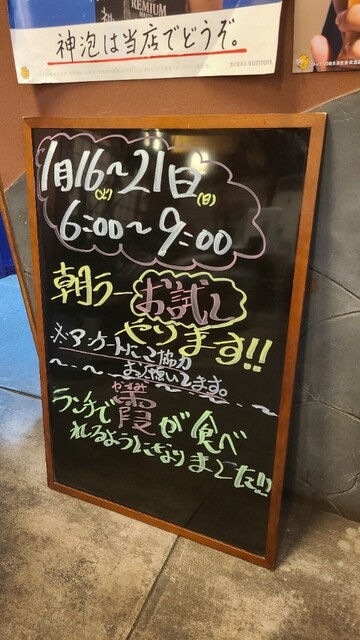 PREMIUM
神泡は当店でどうぞ。
SUNTORY
1月16~21日
(火) (日)
6:00~9:00
朝ラーお試し
やります!!
※アンケートにご協力
お願いします。
かすみ
ランチで霞が食べ
れるようになりました!!